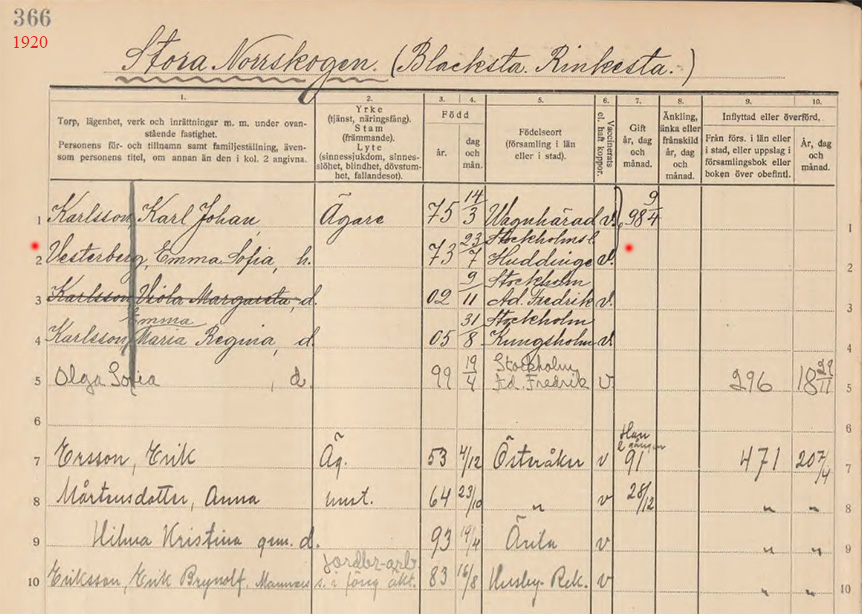 366
1920
Stora Norrskogen. (Blacksta. Rinkesta.)
1. 2. 3. 4. 5. 6. 7. 8. 9. 10.
Torp, lägenhet, verk och inrättningar m. m. under ovanstående fastighet.
Personens för- och tillnamn samt familjeställning, även-
som personens titel, om annan än den i kol. 2 angivna.
Yrke
(tjänst, näringsfång).
Stam
(främmande).
Lyte
(sinnessjukdom, sinnes-
slöhet, blindhet, dövstum-
het, fallandesot).
Född
år.
dag
och
mån.
Födelseort
(församling i län
eller i stad).
Vaccinerats
el. haft koppor.
Gift
år, dag
och
månad.
Änkling,
änka eller
frånskild
år, dag
och
månad.
Inflyttad eller överförd,
Från förs. i län eller
i stad, eller uppslag i
församlingsbok eller
boken över obefintl.
År, dag
och
månad.
1 Karlsson, Karl Johan, Ägare 75 14/3 Vagnhärad v. 98 9/4 1
2 Vesterberg, Emma Sofia, h. 73 23/7 Stockholms l Huddinge v. 2
3 Karlsson Viola Margareta, d. 02 9/11 Stockholm Ad. Fredrik v. 3
Emma
4 Karlsson, Maria Regina, d. 05 31/8 Stockholm Kungsholm v. 4
5 Olga Sofia, d. 99 19/4 Stockholm Ad. Fredrik v 296 18 29/11 5
6 6
7 Ersson, Erik Äg. 53 4/12 Österåker v Han 2 gången 91 471 20 7/4 7
8 Mårtensdotter, Anna hust. 64 23/10 " v 28/12 " " 8
9 Hilma Kristina gem. d. 93 19/4 Ärila v " " 9
10 Eriksson, Erik Brynolf, jordbr-arb. 83 16/8 Husby-Rek. v " " 10